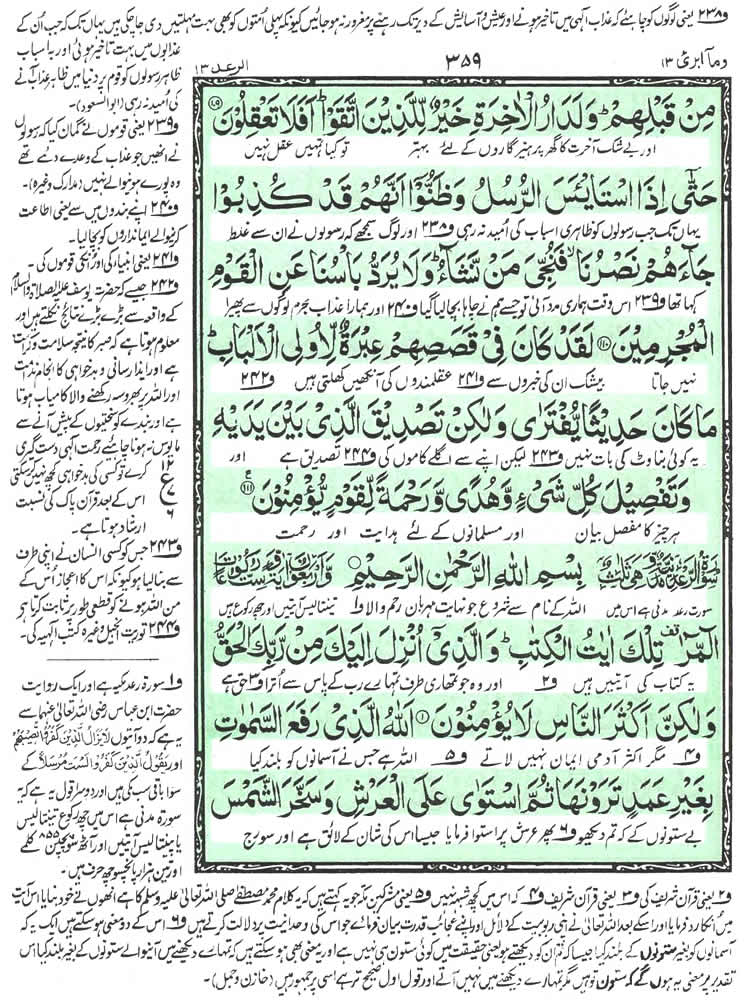 و٢٣٨ یعنی لوگوں کو چاہئے کہ عذاب الٰہی میں تاخیر ہونے اور عیش و آسائش کے دیر تک رہنے پر مغرور نہ ہوجائیں کیونکہ پہلی اُمتوں کو بھی بہت مہلتیں دی جاچکی ہیں یہاں تک کہ جب اُن کے
ومآ ابرئ ١٣
٣٥٩
الرعد ١٣
مِنْ قَبْلِهِمْ ؕ وَلَدَارُ الْاٰخِرَةِ خَيْرٌ لِّلَّذِيْنَ اتَّقَوْا ؕ اَفَلَا تَعْقِلُوْنَ
اور بے شک آخرت کا گھر پرہیزگاروں کے لئے بہتر تو کیا تمہیں عقل نہیں
حَتّٰٓى اِذَا اسْتَايْـَٔسَ الرُّسُلُ وَظَنُّوْٓا اَنَّهُمْ قَدْ كُذِبُوْا
یہاں تک جب رسولوں کو ظاہری اسباب کی اُمید نہ رہی و٢٣٨ اور لوگ سمجھے کہ رسولوں نے ان سے غلط
جَآءَهُمْ نَصْرُنَا ۙ فَنُجِّىَ مَنْ نَّشَآءُ ؕ وَلَا يُرَدُّ بَاْسُنَا عَنِ الْقَوْمِ
کہا تھا و٢٣٩ اس وقت ہماری مدد آئی تو جسے ہم نے چاہا بچالیا گیا و٢٤٠ اور ہمارا عذاب مجرم لوگوں سے پھیرا
الْمُجْرِمِيْنَ ۝١١٠ لَقَدْ كَانَ فِىْ قَصَصِهِمْ عِبْرَةٌ لِّاُولِى الْاَلْبَابِ ؕ
نہیں جاتا بیشک ان کی خبروں سے و٢٤١ عقلمندوں کی آنکھیں کھلتی ہیں و٢٤٢
مَا كَانَ حَدِيْثًا يُّفْتَرٰى وَلٰكِنْ تَصْدِيْقَ الَّذِىْ بَيْنَ يَدَيْهِ
یہ کوئی بناوٹ کی بات نہیں و٢٤٣ لیکن اپنے سے اگلے کاموں کی و٢٤٤ تصدیق ہے اور
وَتَفْصِيْلَ كُلِّ شَىْءٍ وَّهُدًى وَّرَحْمَةً لِّقَوْمٍ يُّؤْمِنُوْنَ ۝١١١
ہر چیز کا مفصل بیان اور مسلمانوں کے لئے ہدایت اور رحمت
بِسْمِ اللهِ الرَّحْمٰنِ الرَّحِيْمِ
سورت رعد مدنی ہے اس میں اللہ کے نام سے شروع جو نہایت مہربان رحم والا و١ تینتالیس آیتیں اور چھ رکوع ہیں
الٓمّٓرٰ ۚ تِلْكَ اٰيٰتُ الْكِتٰبِ ؕ وَالَّذِىْٓ اُنْزِلَ اِلَيْكَ مِنْ رَّبِّكَ الْحَقُّ
یہ کتاب کی آیتیں ہیں و٢ اور وہ جو تمہاری طرف تمہارے رب کے پاس سے اُترا و٣ حق ہے
وَلٰكِنَّ اَكْثَرَ النَّاسِ لَا يُؤْمِنُوْنَ ۝١ اَللهُ الَّذِىْ رَفَعَ السَّمٰوٰتِ
و٤ مگر اکثر آدمی ایمان نہیں لاتے و٥ اللہ ہے جس نے آسمانوں کو بلند کیا
بِغَيْرِ عَمَدٍ تَرَوْنَهَا ثُمَّ اسْتَوٰى عَلَى الْعَرْشِ وَسَخَّرَ الشَّمْسَ
بے ستونوں کے کہ تم دیکھو و٦ پھر عرش پر استوا فرمایا جیسا اس کی شان کے لائق ہے اور سورج
عذابوں میں بہت تاخیر ہوئی اور باسباب
ظاہر رسولوں کو قوم پر دنیا میں ظاہر عذاب آنے
کی امید نہ رہی (ابوالسعود)۔
و٢٣٩ یعنی قوموں نے گمان کیا کہ رسولوں
نے انھیں جو عذاب کے وعدے دئے تھے
وہ پورے ہونیوالے نہیں (مدارک وغیرہ)۔
و٢٤٠ اپنے بندوں میں سے یعنی اطاعت
کرنیوالے ایمانداروں کو بچالیا۔
و٢٤١ یعنی انبیاء کی اور انکی قوموں کی۔
و٢٤٢ جیسے کہ حضرت یوسف علیہ الصلاۃ والسلام
کے واقعہ سے بڑے بڑے نتائج نکلتے ہیں اور
معلوم ہوتا ہے کہ صبر کا نتیجہ سلامت و کرامت
ہے اور ایذا رسانی و بدخواہی کا انجام ندامت
اور اللہ پر بھروسہ رکھنے والا کامیاب ہوتا
ہے اور بندے کو سختیوں کے پیش آنے سے
مایوس نہ ہونا چاہئے رحمت الٰہی دست گیری
کرے تو کسی کی بدخواہی کچھ نہیں کرسکتی
اس کے بعد قرآن پاک کی نسبت
ارشاد ہوتا ہے۔
و٢٤٣ جس کو کسی انسان نے اپنی طرف
سے بنالیا ہو کیونکہ اس کا اعجاز اُس کے
من اللہ ہونے کو قطعی طور پر ثابت کرتا ہے
و٢٤٤ توریت انجیل وغیرہ کتب الٰہیہ کی۔
و١ سورۂ رعد مکیہ ہے اور ایک روایت
حضرت ابن عباس رضی اللہ تعالیٰ عنہما سے
یہ ہے کہ دو آیتوں لَا يَزَالُ الَّذِيْنَ كَفَرُوْا تُصِيْبُهُمْ
اور يَقُوْلُ الَّذِيْنَ كَفَرُوْا لَسْتَ مُرْسَلًا کے
سوا باقی سب مکی ہیں اور دوسرا قول یہ ہے کہ
سورۃ مدنی ہے اس میں چھ رکوع تینتالیس
یا پینتالیس آیتیں اور آٹھ سو پچپن کلمے
اور تین ہزار پانچسو چھ حرف ہیں۔
و٢ یعنی قرآن شریف کی و٣ یعنی قرآن شریف و٤ کہ اس میں کچھ شبہہ نہیں و٥ یعنی مشرکین مکہ جو یہ کہتے ہیں کہ یہ کلام محمد مصطفےٰ صلی اللہ تعالیٰ علیہ وسلم کا ہے انھوں نے خود بنایا اس آیت
میں انکا رد فرمایا اور اسکے بعد اللہ تعالیٰ نے اپنی ربوبیت کے دلائل اور اپنے عجائب قدرت بیان فرمائے جو اس کی وحدانیت پر دلالت کرتے ہیں و٦ اس کے دو معنی ہوسکتے ہیں ایک یہ کہ
آسمانوں کو بغیر ستونوں کے بلند کیا جیسا کہ تم ان کو دیکھتے ہو یعنی حقیقت میں کوئی ستون ہی نہیں ہے اور یہ معنی بھی ہوسکتے ہیں کہ تمہارے دیکھنے میں آنیوالے ستونوں کے بغیر بلند کیا اس
تقدیر پر معنی یہ ہوں گے کہ ستون تو ہیں مگر تمہارے دیکھنے میں نہیں آتے اور قول اول صحیح تر ہے اسی پر جمہور ہیں (خازن و جمل)۔